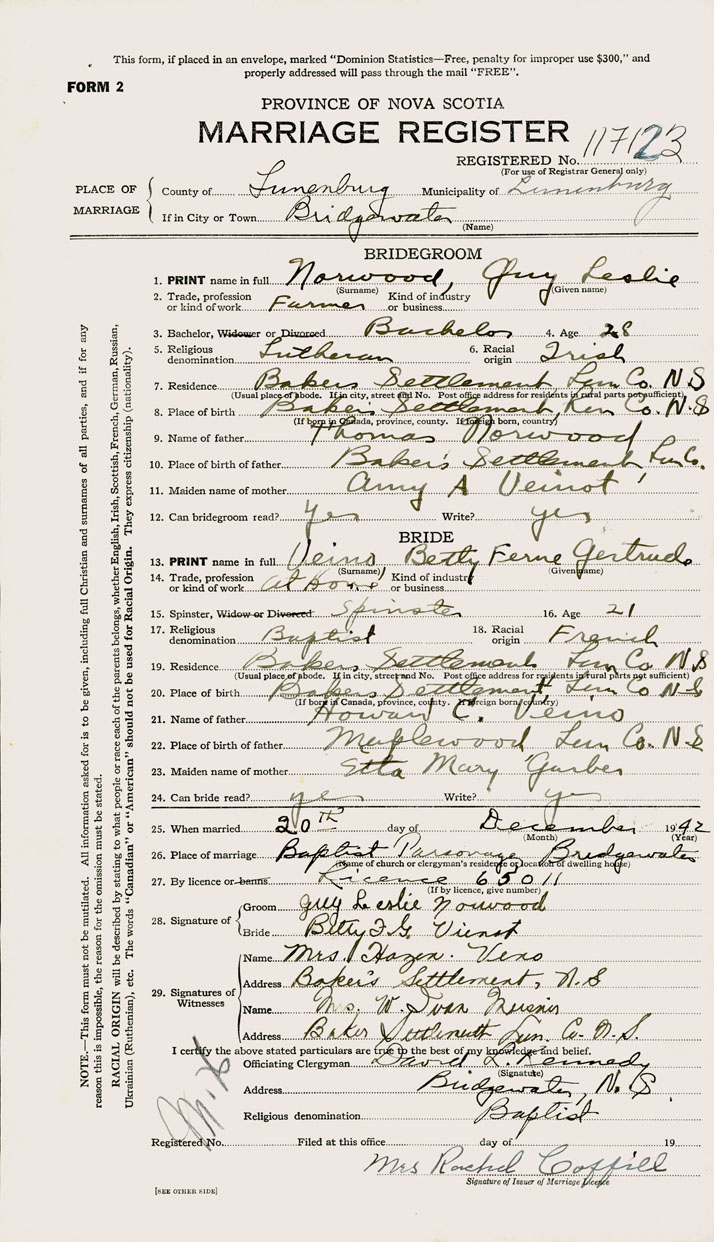 This form, if placed in an envelope, marked "Dominion Statistics—Free, penalty for improper use $300," and
properly addressed will pass through the mail "FREE".
FORM 2
PROVINCE OF NOVA SCOTIA
MARRIAGE REGISTER
REGISTERED No. 117123
(For use of Registrar General only)
PLACE OF MARRIAGE
County of Lunenburg Municipality of Lunenburg
If in City or Town Bridgewater
(Name)
BRIDEGROOM
1. PRINT name in full Norwood, Guy Leslie
(Surname) (Given name)
2. Trade, profession or kind of work Farmer Kind of industry or business
3. Bachelor, Widower or Divorced Bachelor 4. Age 28
5. Religious denomination Lutheran 6. Racial origin Irish
7. Residence Bakers Settlement, Lun Co. N.S
(Usual place of abode. If in city, street and No. Post office address for residents in rural parts not sufficient)
8. Place of birth Baker's Settlement, Lun Co. N.S
(If born in Canada, province, county. If foreign born, country)
9. Name of father Thomas Norwood
10. Place of birth of father Baker's Settlement Lun Co.
11. Maiden name of mother Amy A Veinot
12. Can bridegroom read? yes Write? yes
BRIDE
13. PRINT name in full Veino Betty Ferne Gertrude
(Surname) (Given name)
14. Trade, profession or kind of work at Home Kind of industry or business
15. Spinster, Widow or Divorced Spinster 16. Age 21
17. Religious denomination Baptist 18. Racial origin French
19. Residence Bakers Settlement Lun Co N.S
(Usual place of abode. If in city, street and No. Post office address for residents in rural parts not sufficient)
20. Place of birth Bakers Settlement Lun Co N-S
(If born in Canada, province, county. If foreign born, country)
21. Name of father Howard C. Veino
22. Place of birth of father Maplewood Lun Co. N-S
23. Maiden name of mother Etta Mary Garber
24. Can bride read? yes Write? yes
25. When married 20TH day of December 1942
(Month) (Year)
26. Place of marriage Baptist Parsonage, Bridgewater
(Name of church or clergyman's residence or location of dwelling house)
27. By licence or banns Licence 65011
(If by licence, give number)
28. Signature of
Groom Guy Leslie Norwood
Bride Betty F.G. Vienot
29. Signatures of Witnesses
Name Mrs. Hazen Veno
Address Baker's Settlement, N.S
Name Mrs. W. Ivan Meisner
Address Baker Settlement Lun. Co. N.S.
I certify the above stated particulars are true to the best of my knowledge and belief.
Officiating Clergyman David L. Kennedy
(Signature)
Address Bridgewater, N.S
Religious denomination Baptist
Registered No. Filed at this office day of 19
Mrs Rachel Coffill
Signature of Issuer of Marriage Licence
[SEE OTHER SIDE]
NOTE.—This form must not be mutilated. All information asked for is to be given, including full Christian and surnames of all parties, and if for any
reason this is impossible, the reason for the omission must be stated.
RACIAL ORIGIN will be described by stating to what people or race each of the parents belongs, whether English, Irish, Scottish, French, German, Russian,
Ukrainian (Ruthenian), etc. The words "Canadian" or "American" should not be used for Racial Origin. They express citizenship (nationality).